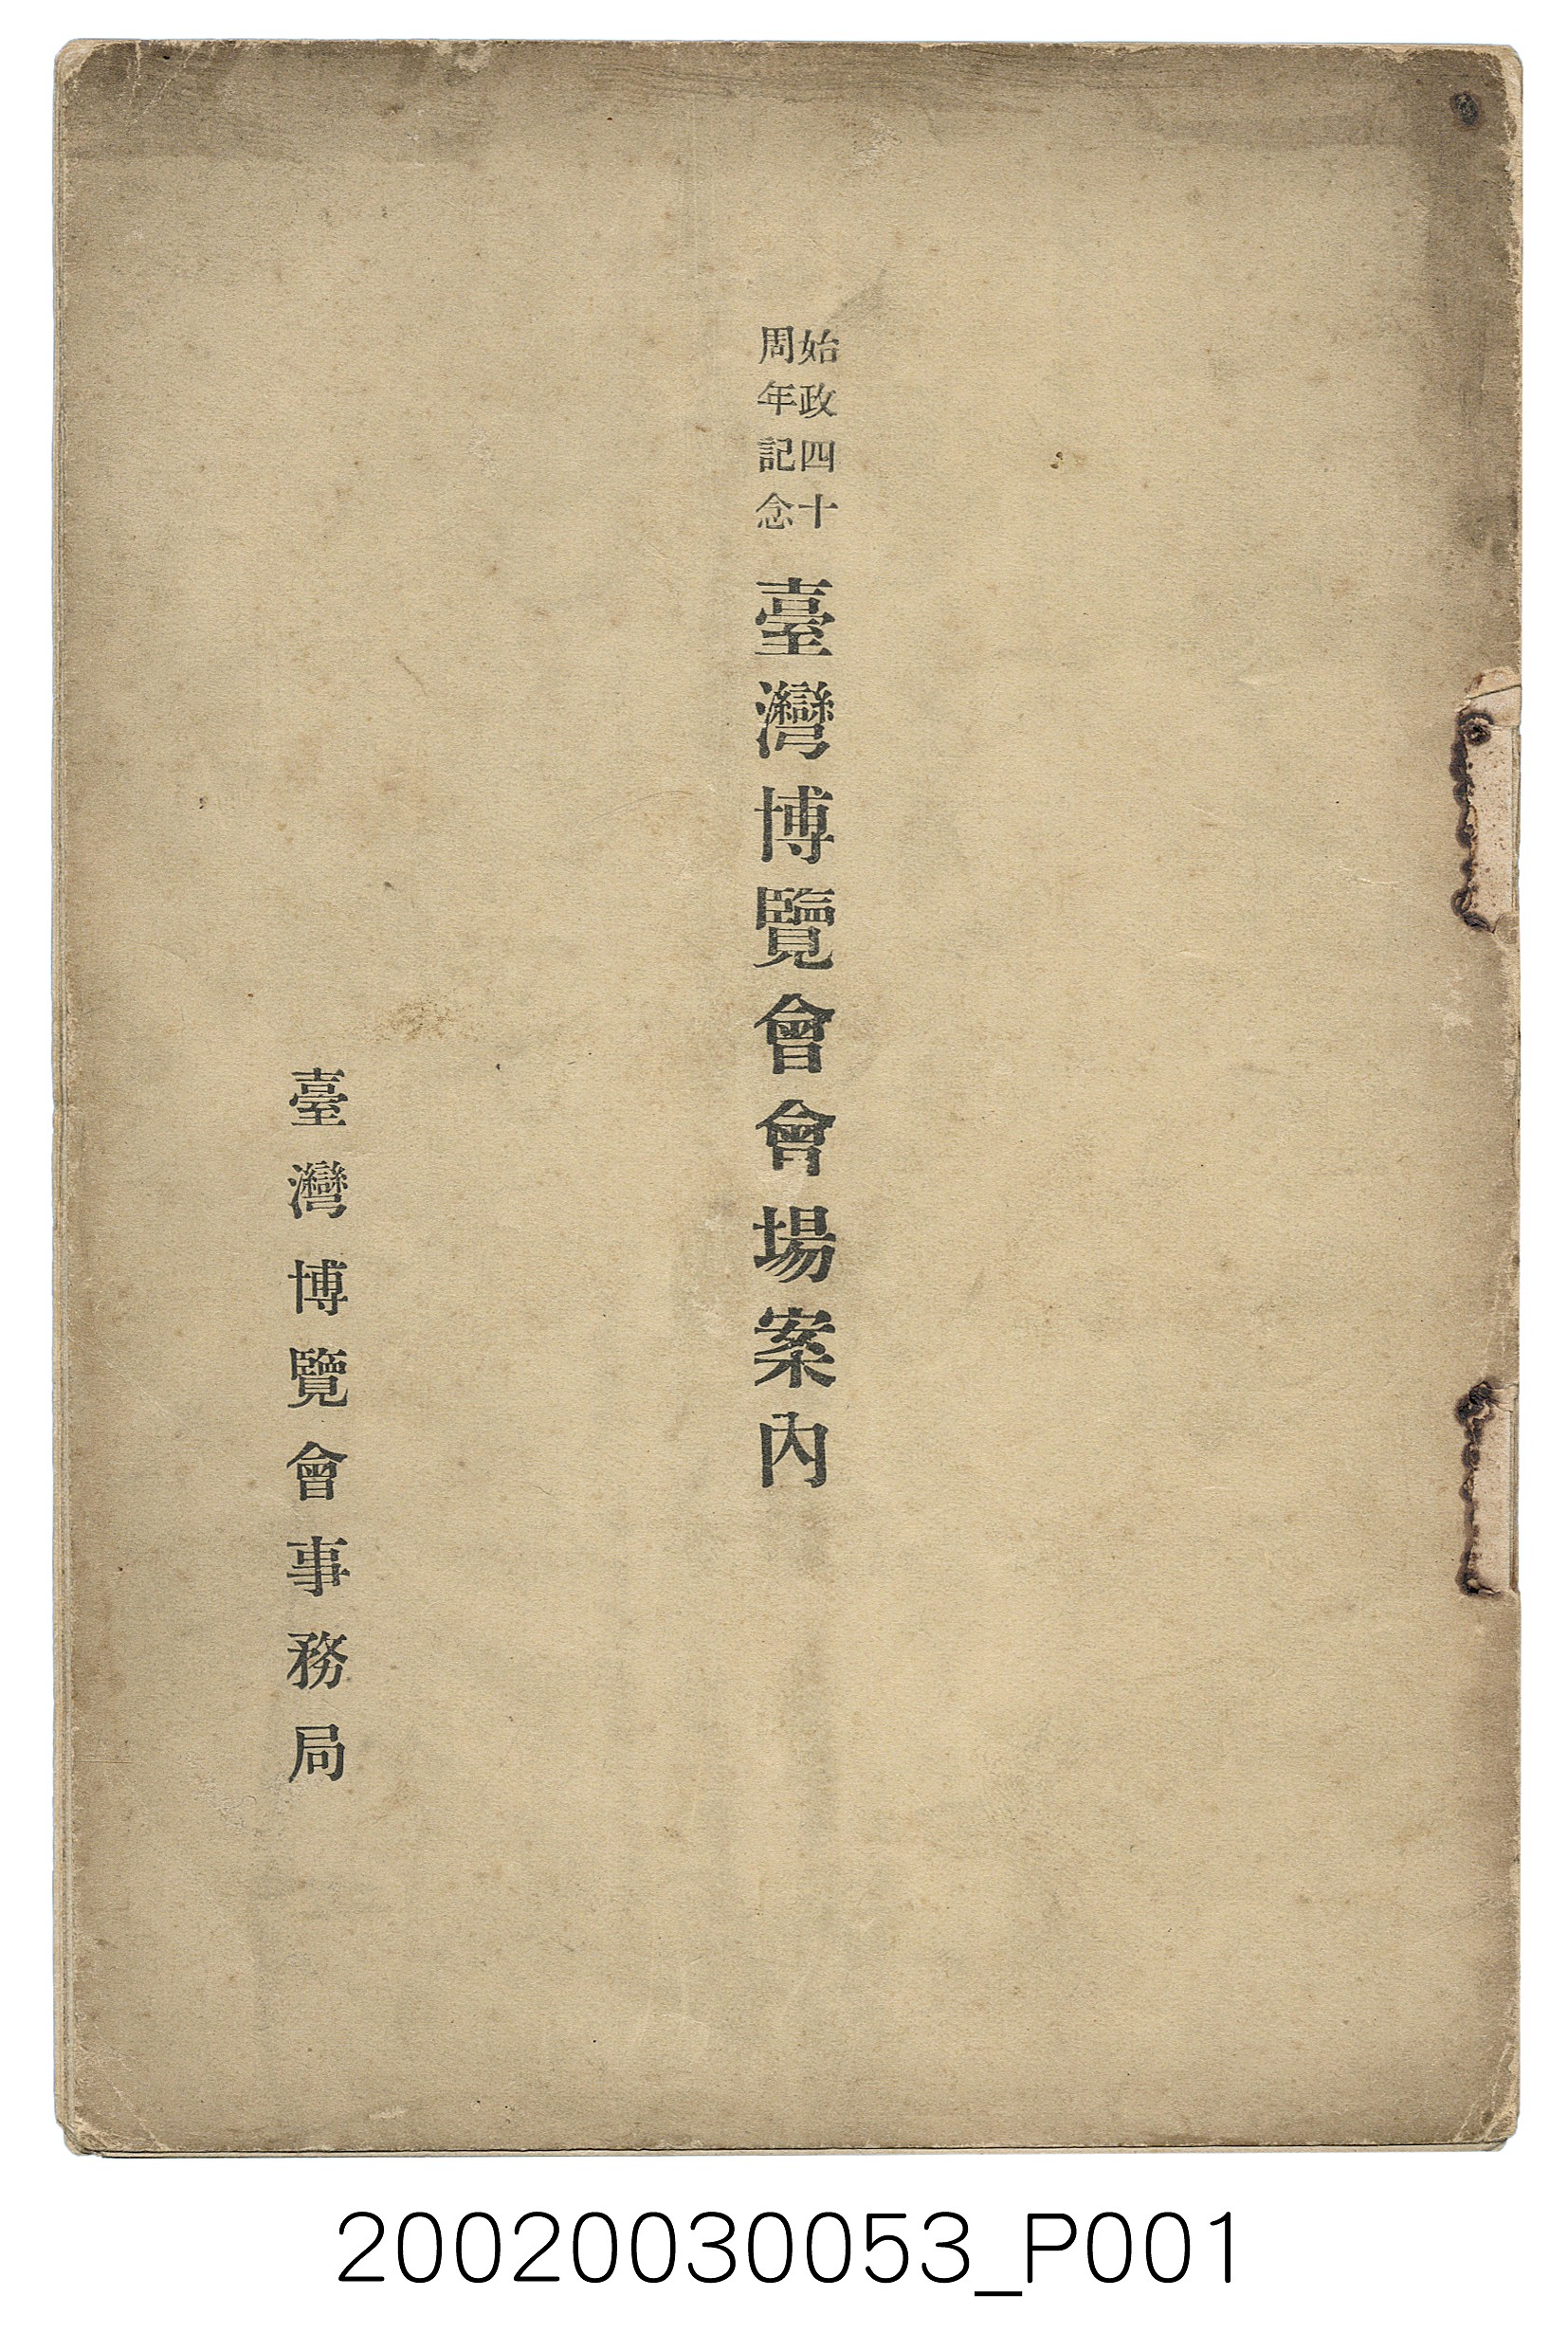 始政四十
周年記念
臺灣博覽會會場案內
臺灣博覽會事務局
20020030053_P001